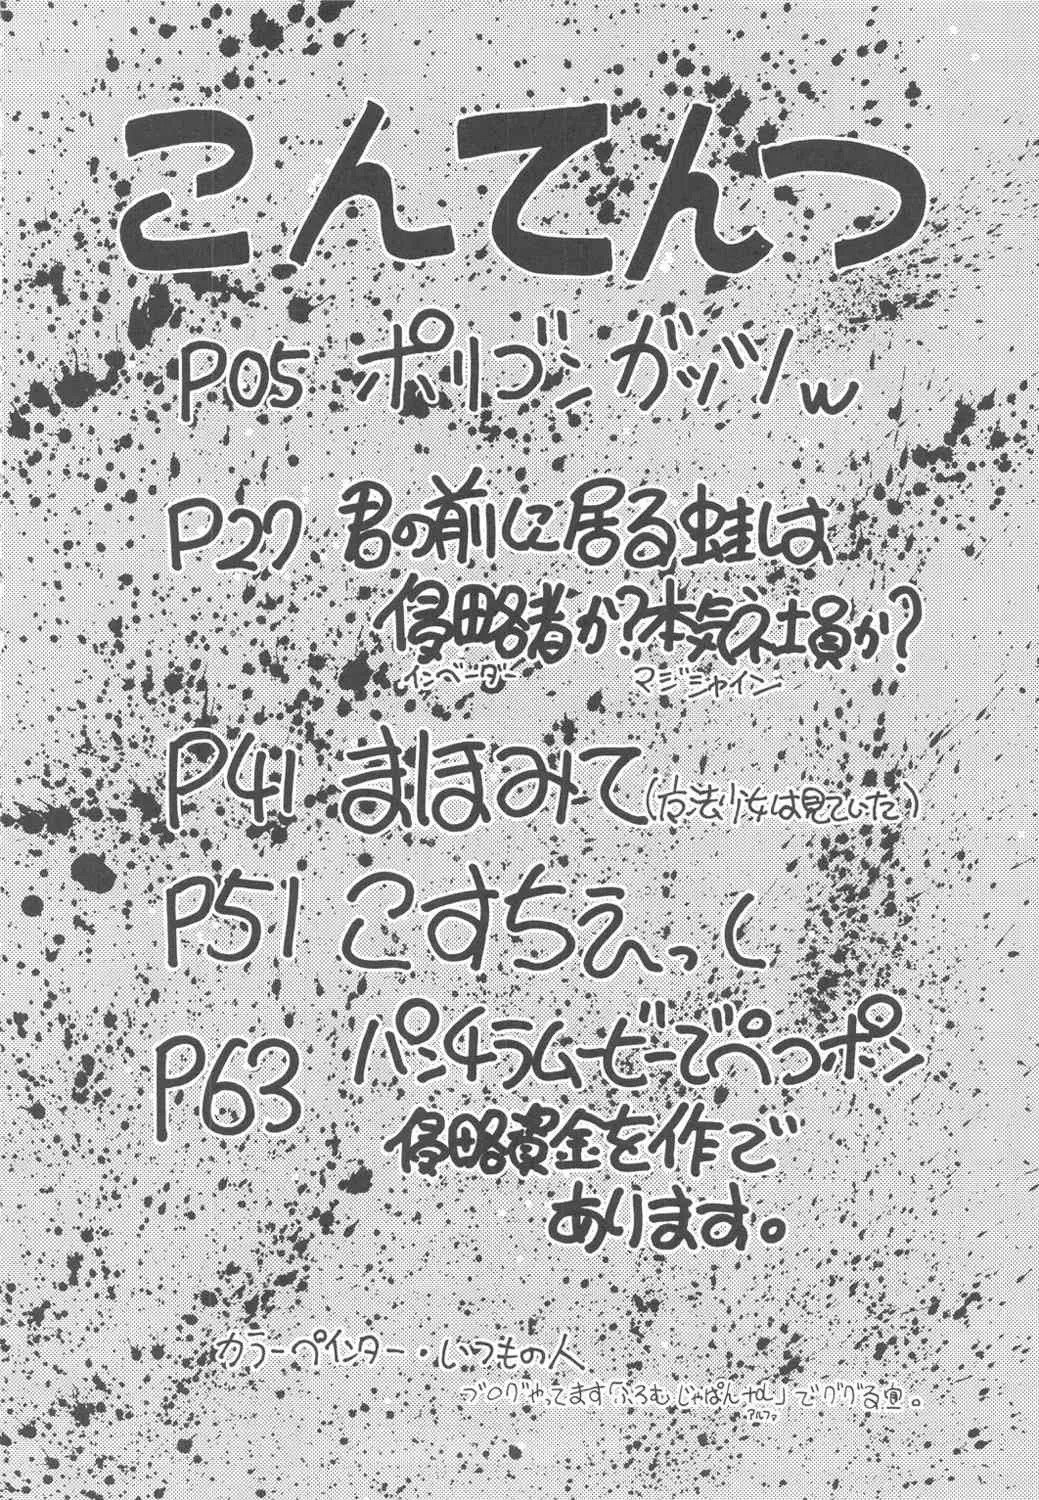 こんてんつ
P05 ポリゴンガッツw
P27 君の前に居る蛙は
侵略者か?本気ネ土員か?
インベーダー マジシャイン
P41 まほみて(方法少女は見ていた)
P51 こすちぇっく
P63 パンチラムービーでぺっポン
侵略資金を作で
あります。
カラーペインター・いつもの人
ブログやってます「ふろむじゃぱん
アルファ
」でググる宜。